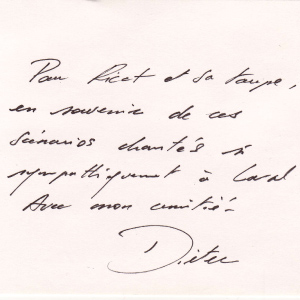 Pour Ricet et sa troupe,
en souvenir de ces
scénarios chantés si
sympathiquement à Laval
Avec mon amitié.
Dieter